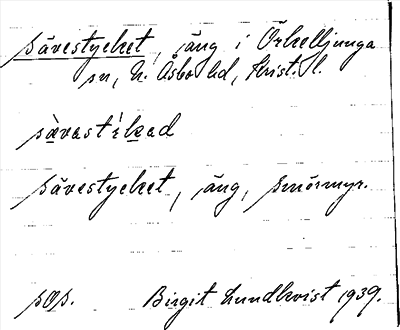 sävestycket, äng i Örkelljunga
sn, N. Åsbo hd, Krist. l.
sävestycket, äng, Smörmyr.
Birgit Lundkvist 1939.